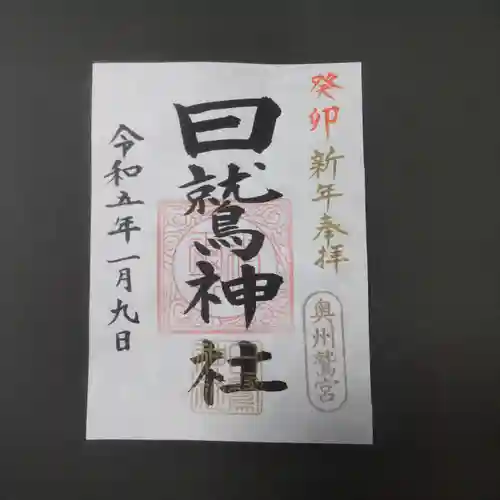 癸卯新年奉拝
奥州鷲宮
曰鷲神社
令和五年一月九日